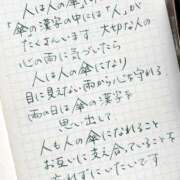 人は人の傘
「傘の漢字の中には「人」が
たくさんいます 大切な人の
心の雨に気づいたら
人は人の傘になり
目に見えない雨から心を守れる
雨の日は傘の漢字を
思い出して
人も人の傘になれること
お互いに支え合っていることを
忘れずにいたいです